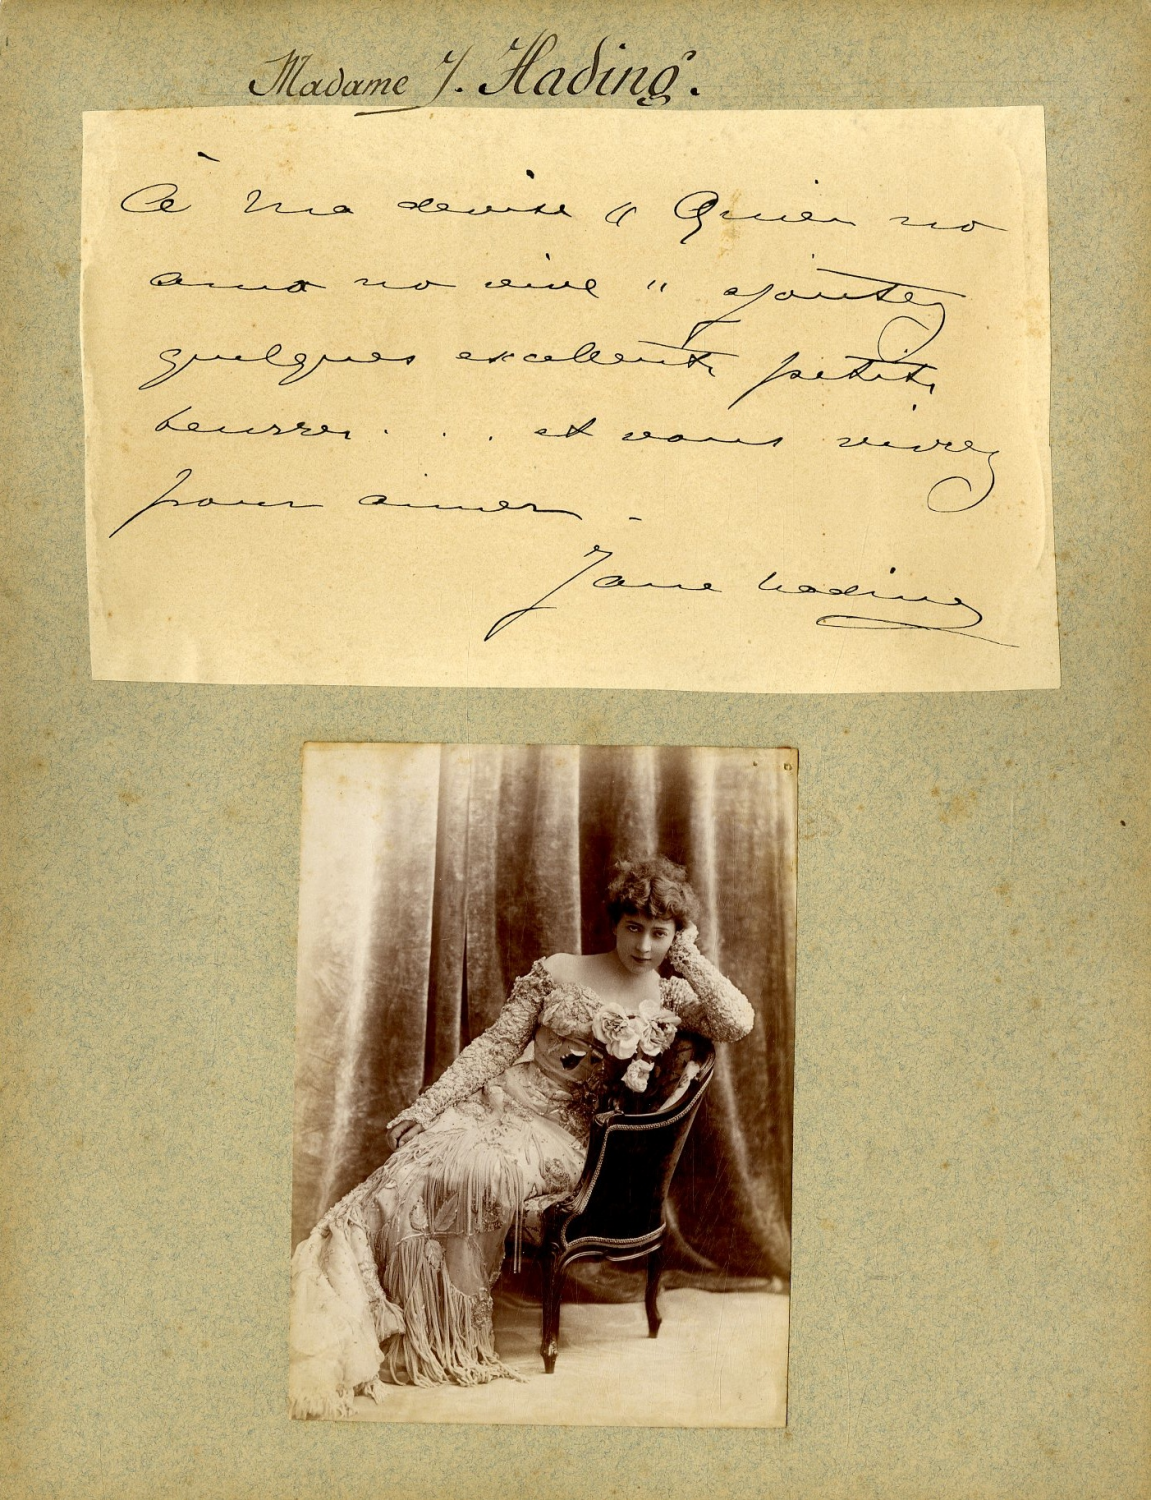 Madame J. Hading.
À ma devise " Quien no
ama no vive " ajoutez
quelques excellents petits
beurres . . . et vous vivrez
pour aimer.
Jane Hading